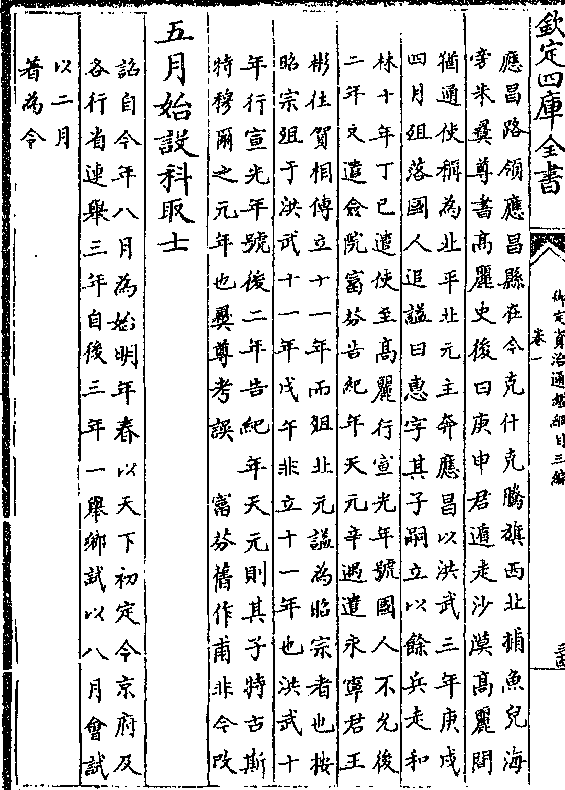 欽定四庫全書
御定資治通鑑綱目三編
卷一
應昌路領應昌縣在今克什克騰旗西北捕魚兒海
旁朱彝尊書高麗史後曰庚申君遁走沙漠高麗間
猶通使稱為北平北元主奔應昌以洪武三年庚戌
四月殂落國人追諡曰惠字其子嗣立以餘兵走和
林十年丁巳遣使至高麗行宣光年號國人不允後
二年又遣僉院富芬告紀年天元辛遇遣永寧君王
彬往賀相傳立十一年而殂北元諡為昭宗者也按
昭宗殂于洪武十一年戊午非立十一年也洪武十
年行宣光年號後二年告紀年天元則其子特古斯
特穆爾之元年也彝尊考誤 富芬舊作甫非今改
五月始設科取士
詔自今年八月為始明年春以天下初定令京府及
各行省連舉三年自後三年一舉鄉試以八月會試
以二月
著為令